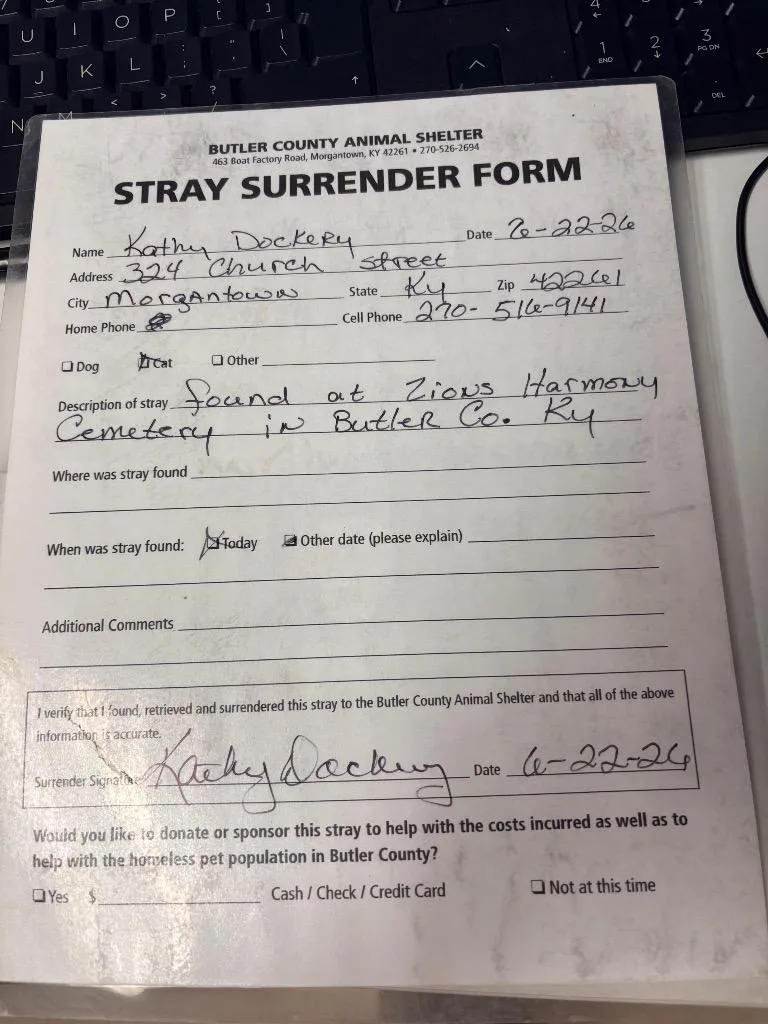 U I O P [ ]
J K L ; : ' " \ |
N M < > ?
↑
^
4
←
1
END
2
↓
3
PG DN
DEL
BUTLER COUNTY ANIMAL SHELTER
463 Boat Factory Road, Morgantown, KY 42261 • 270-526-2694
STRAY SURRENDER FORM
Name Kathy Dockery Date 6-22-26
Address 324 Church street
City Morgantown State Ky Zip 42261
Home Phone Cell Phone 270-516-9141
❑ Dog ❑ Cat ❑ Other
Description of stray found at Zions Harmony
Cemetery in Butler Co. Ky
Where was stray found
When was stray found: ❑ Today ❑ Other date (please explain)
Additional Comments
I verify that I found, retrieved and surrendered this stray to the Butler County Animal Shelter and that all of the above
information is accurate.
Surrender Signature Kathy Dockery Date 6-22-26
Would you like to donate or sponsor this stray to help with the costs incurred as well as to
help with the homeless pet population in Butler County?
❑ Yes $ Cash / Check / Credit Card ❑ Not at this time